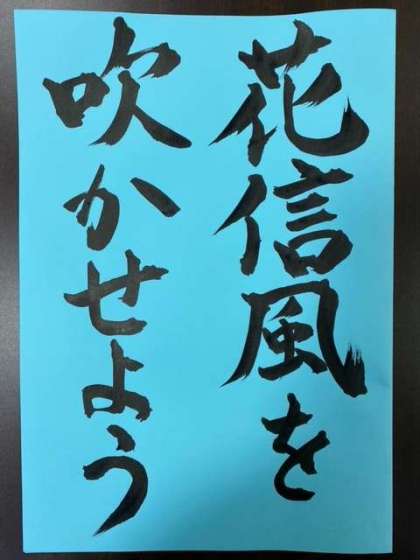 花信風を
吹かせよう